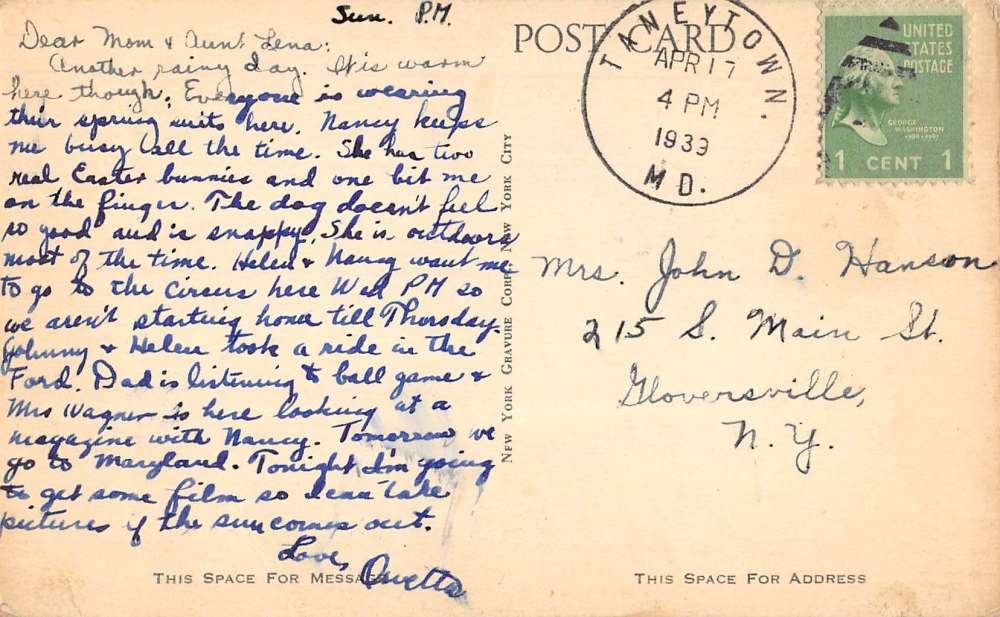 Sun. P.M.
Dear Mom & Aunt Lena:
Another rainy day. It is warm
here though. Everyone is wearing
their spring suits here. Nancy keeps
me busy all the time. She has two
real Easter bunnies and one bit me
on the finger. The dog doesn't feel
so good and is snappy. She is outdoors
most of the time. Helen & Nancy want me
to go to the circus here Wed PM so
we aren't starting home till Thursday.
Johnny & Helen took a ride in the
Ford. Dad is listening to ball game &
Mrs Wagner is here looking at a
magazine with Nancy. Tomorrow we
go to Maryland. Tonight I'm going
to get some film so I can take
pictures if the sun comes out.
Love,
THIS SPACE FOR MESSAGE
NEW YORK GRAVURE CORP. NEW YORK CITY
POST CARD
TANEYTOWN.
APR 17
4 PM
1939
MD.
UNITED
STATES
POSTAGE
GEORGE
WASHINGTON
1 CENT 1
Mrs. John D. Hanson
215 S. Main St.
Gloversville,
N.Y.
THIS SPACE FOR ADDRESS